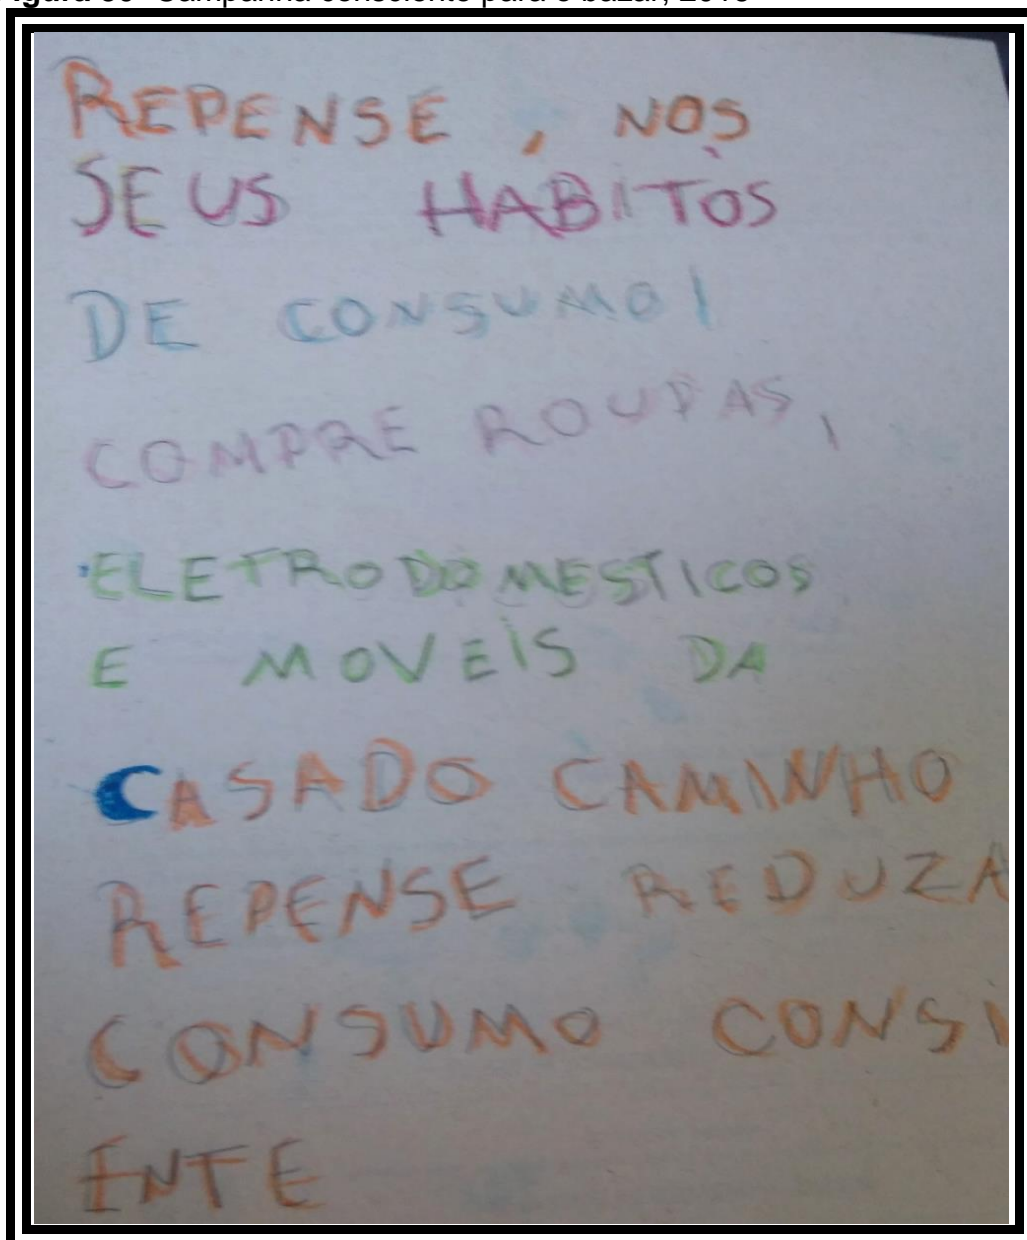 REPENSE, NOS
SEUS HABITOS
DE CONSUMO!
COMPRE ROUPAS,
ELETRODOMESTICOS
E MOVEIS DA
CASADO CAMINHO
REPENSE REDUZA
CONSUMO CONSI
ENTE